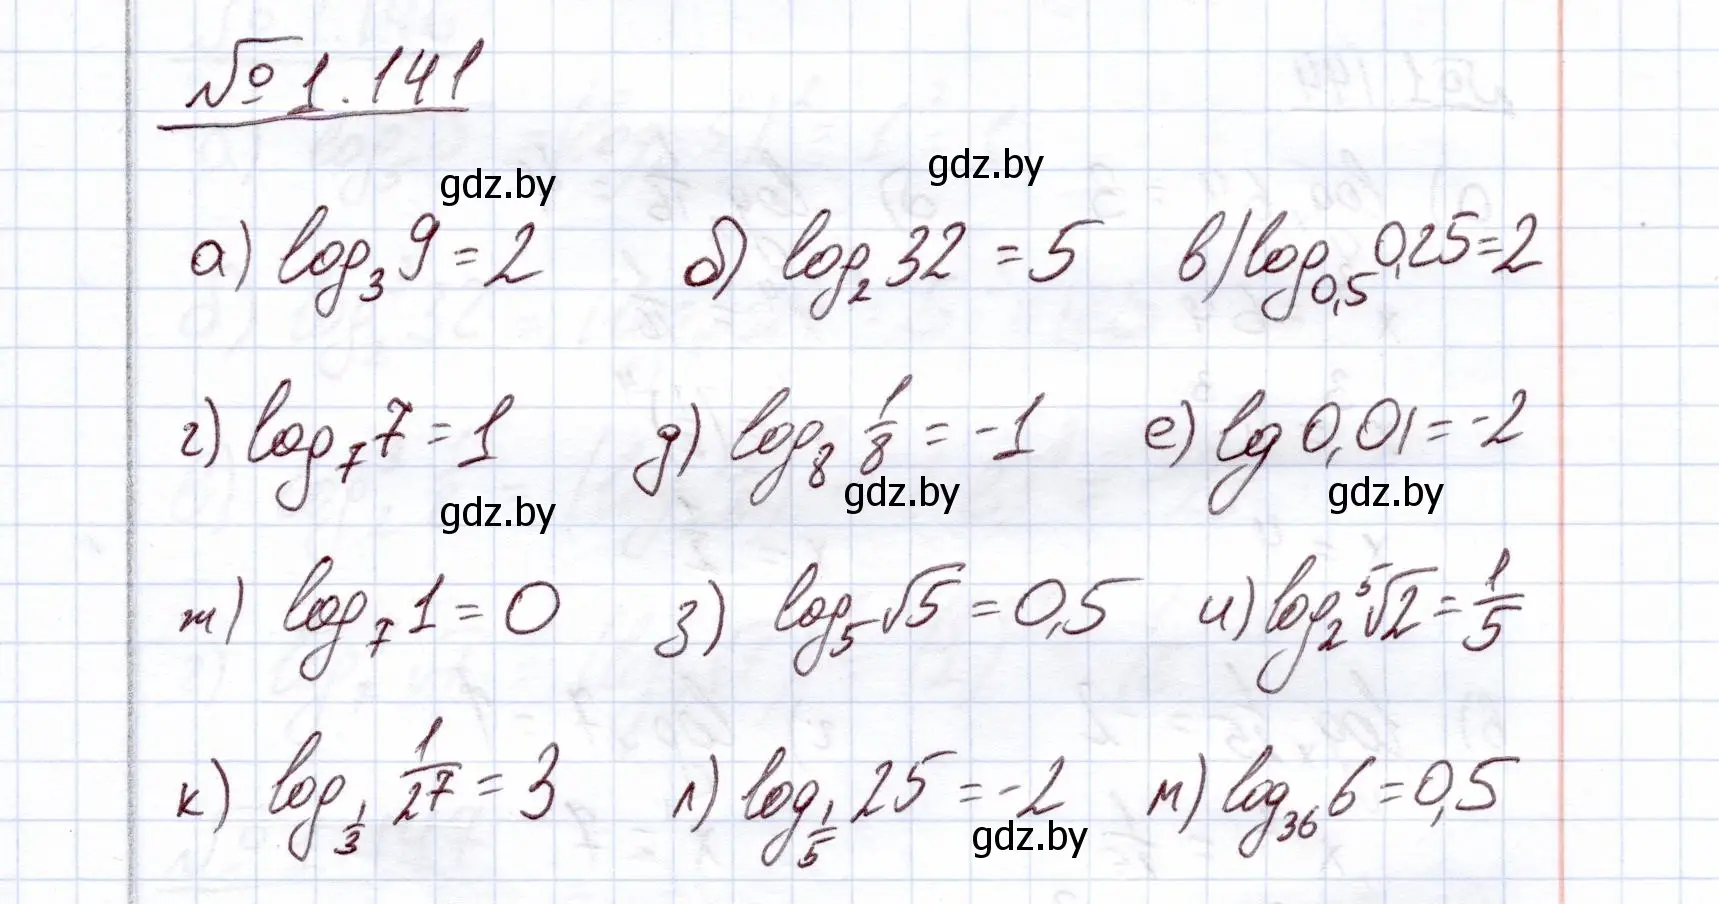 № 1.141
gdz.by gdz.by
а) log₃ 9 = 2 б) log₂ 32 = 5 в) log₀,₅ 0,25 = 2
г) log₇ 7 = 1 д) log₈ 1/8 = -1 е) lg 0,01 = -2
gdz.by gdz.by gdz.by
ж) log₇ 1 = 0 з) log₅ √5 = 0,5 и) log₂ ⁵√2 = 1/5
к) log_{1/3} 1/27 = 3 л) log_{1/5} 25 = -2 м) log₃₆ 6 = 0,5
gdz.by